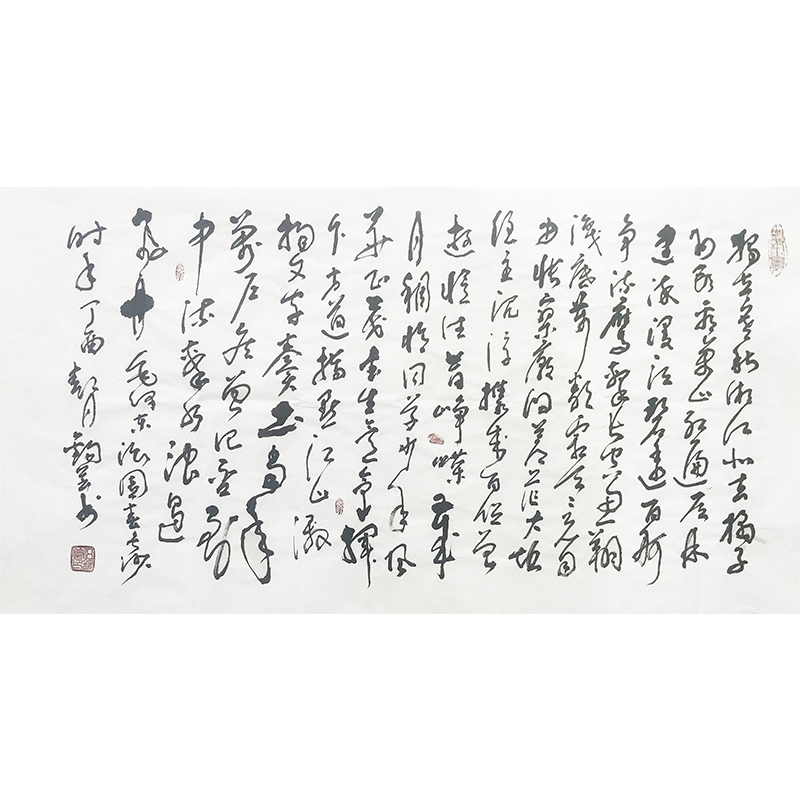 獨立寒秋湘江北去橘子
洲头看万山红遍层林
尽染漫江碧透百舸
争流鹰击长空鱼翔
浅底万类霜天竞自
由怅寥廓问苍茫大地
谁主沉浮携来百侣曾
遊忆往昔峥嵘岁
月稠恰同学少年风
华正茂书生意气挥
斥方遒指点江山激
扬文字粪土当年
萬户侯曾记否到
中流击水浪遏
飞舟 毛泽东沁园春长沙
时年丁酉 月 书